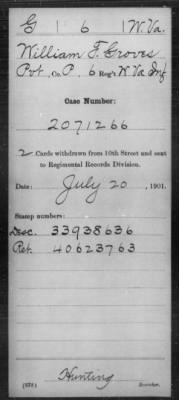 G | 6 | W. Va.
William F. Groves
Pvt., Co. P, 6 Reg't W Va Inf
Case Number:
2071266
2 Cards withdrawn from 10th Street and sent
to Regimental Records Division.
Date: July 20, 1901.
Stamp numbers:
Desc. 33938636
Ret. 40623763
Hunting
(673) Searcher.